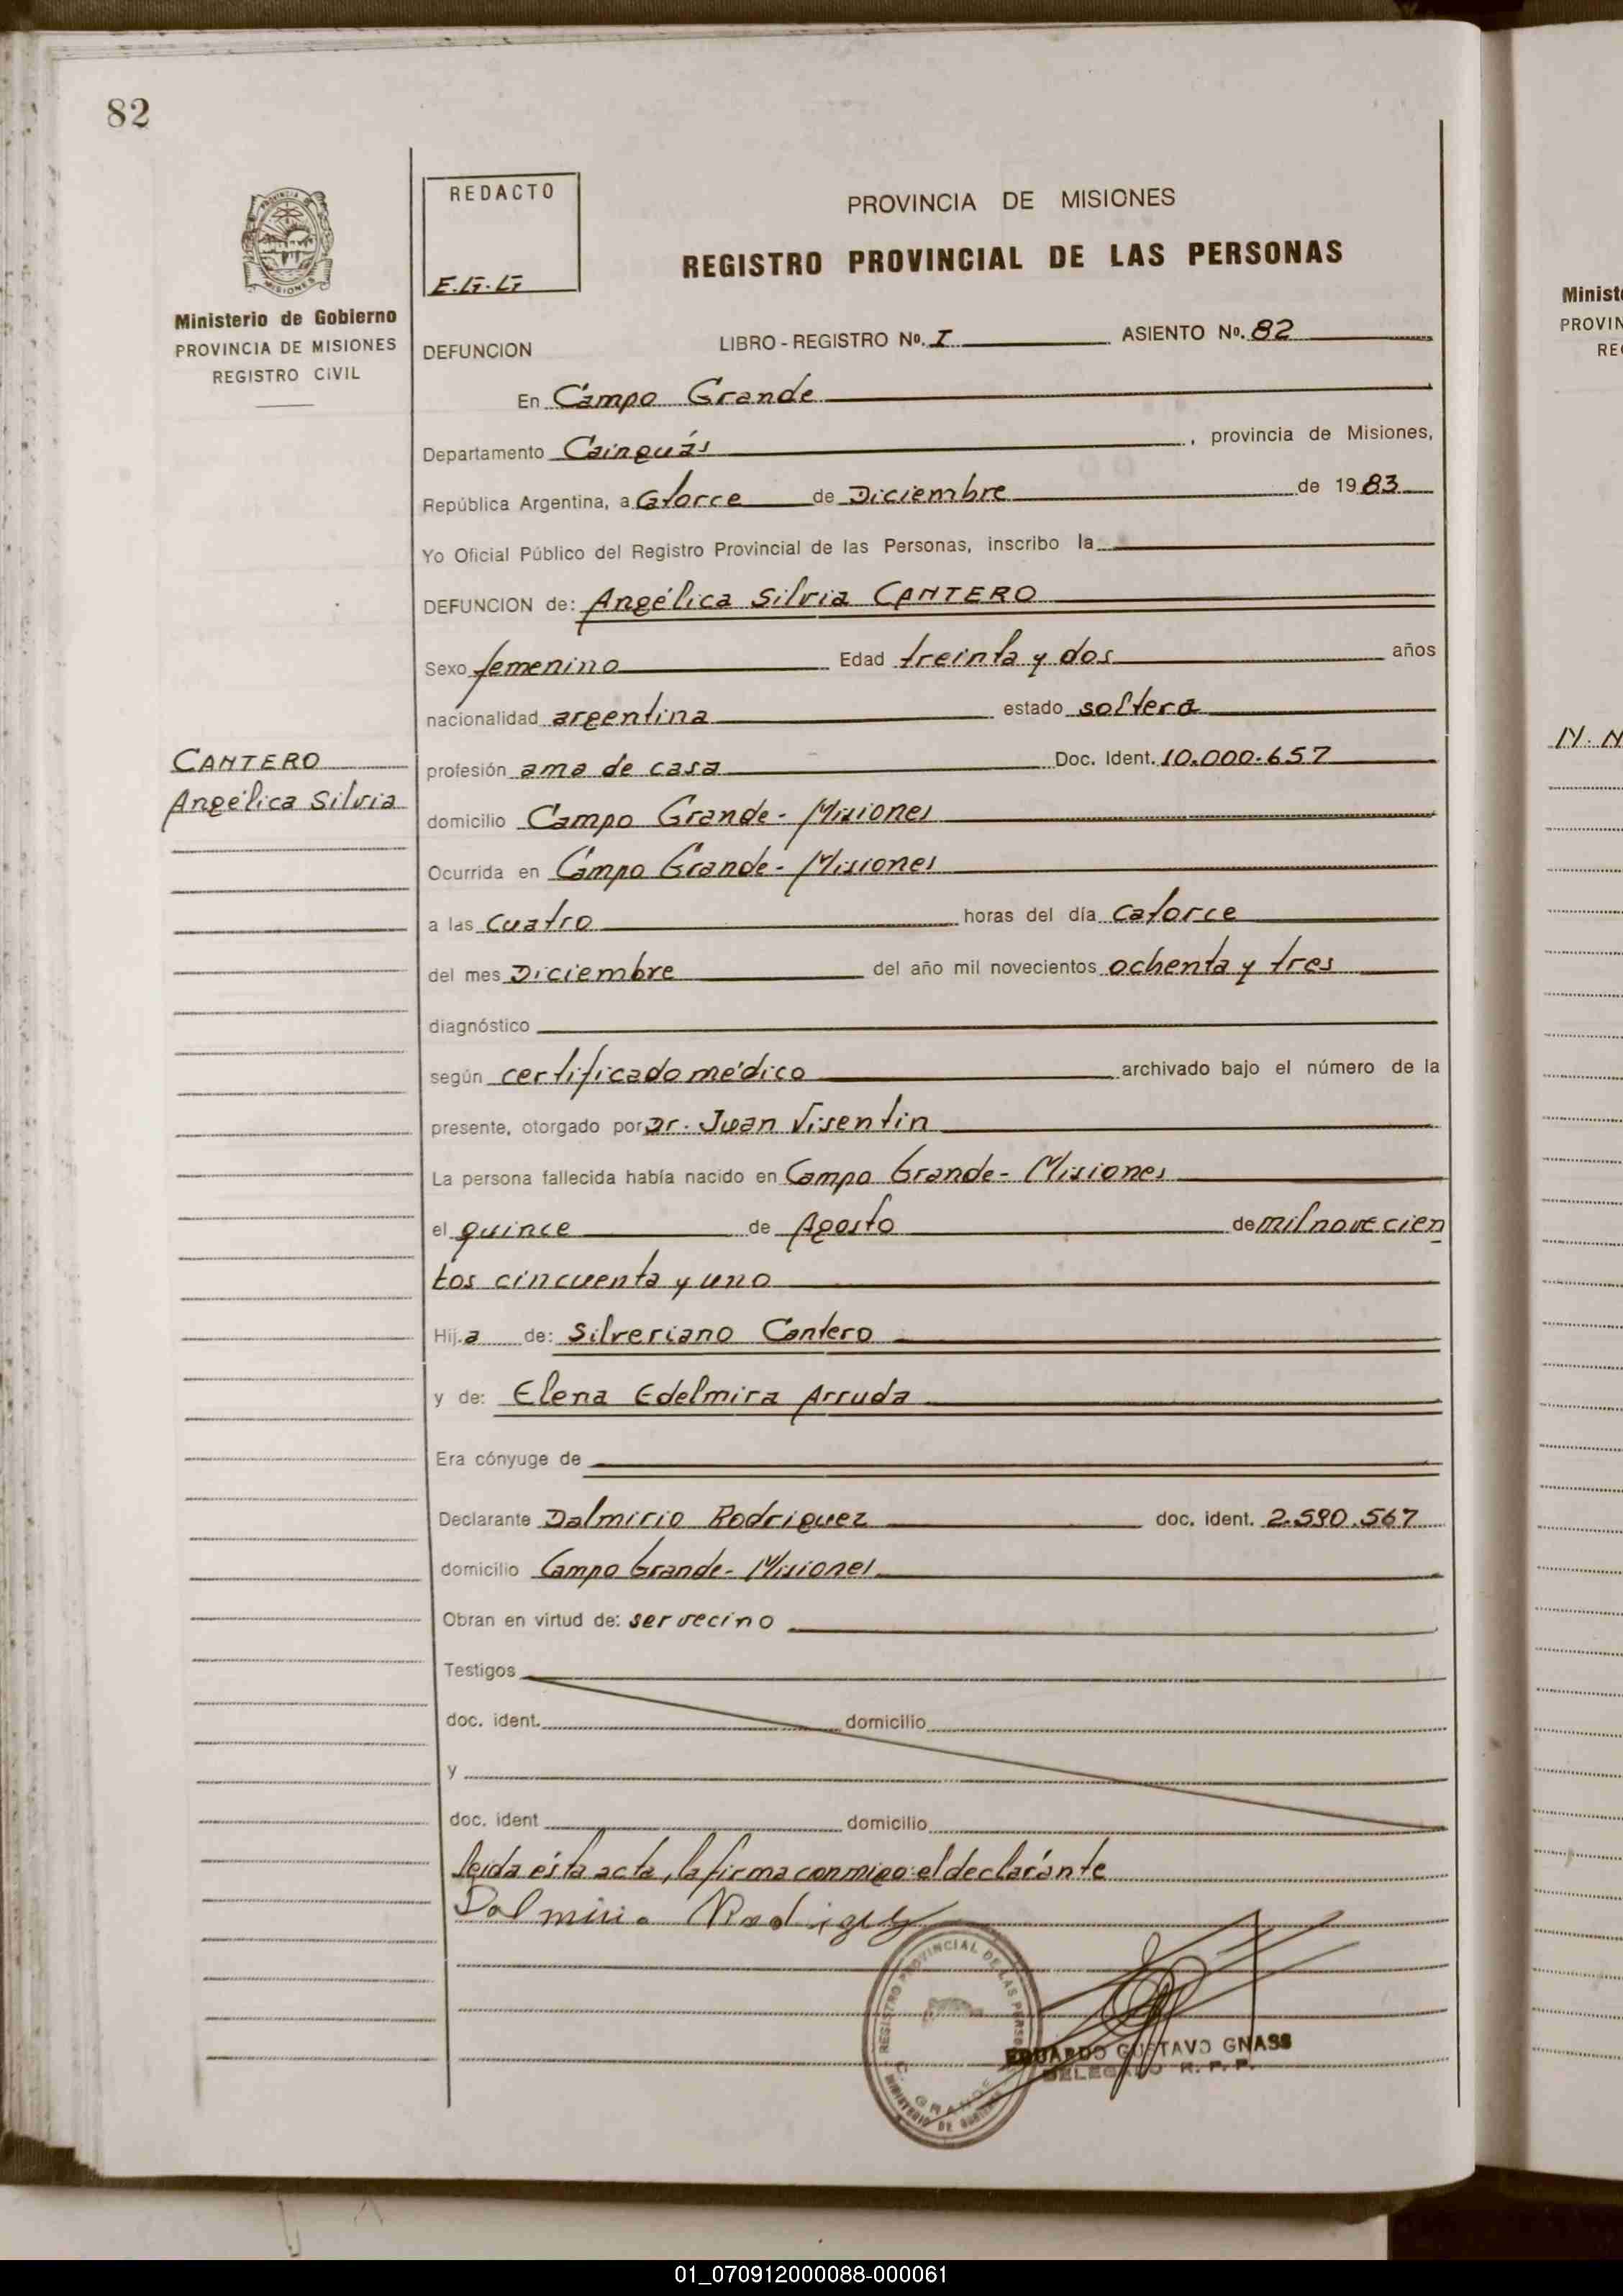 82
REDACTO
E.G.G
PROVINCIA DE MISIONES
REGISTRO PROVINCIAL DE LAS PERSONAS
Ministerio de Gobierno
PROVINCIA DE MISIONES
REGISTRO CIVIL
DEFUNCION LIBRO - REGISTRO No. I ASIENTO No. 82
En Campo Grande
Departamento Cainguás, provincia de Misiones,
República Argentina, a Catorce de Diciembre de 1983
Yo Oficial Público del Registro Provincial de las Personas, inscribo la
DEFUNCION de: Angélica Silvia CANTERO
Sexo femenino Edad treinta y dos años
nacionalidad argentina estado soltera
CANTERO
Angélica Silvia
profesión ama de casa Doc. Ident. 10.000.657
domicilio Campo Grande - Misiones
Ocurrida en Campo Grande - Misiones
a las cuatro horas del día catorce
del mes Diciembre del año mil novecientos ochenta y tres
diagnóstico
según certificado médico archivado bajo el número de la
presente, otorgado por Dr. Juan Visentin
La persona fallecida había nacido en Campo Grande - Misiones
el quince de Agosto de mil novecien
tos cincuenta y uno
Hij.a de: Silveriano Cantero
y de: Elena Edelmira Arruda
Era cónyuge de
Declarante Dalmirio Rodriguez doc. ident. 2.590.567
domicilio Campo Grande - Misiones
Obran en virtud de: ser vecino
Testigos
doc. ident. domicilio
y
doc. ident domicilio
leida ésta acta, la firma conmigo el declarante
Dalmirio Rodriguez
REGISTRO PROVINCIAL DE LAS PERSO
C. GRANDE
MINISTERIO DE GOBIERNO
EDUARDO GUSTAVO GNASS
DELEGADO R. P. P.
Minist
PROVIN
RE
N. N
01_070912000088-000061